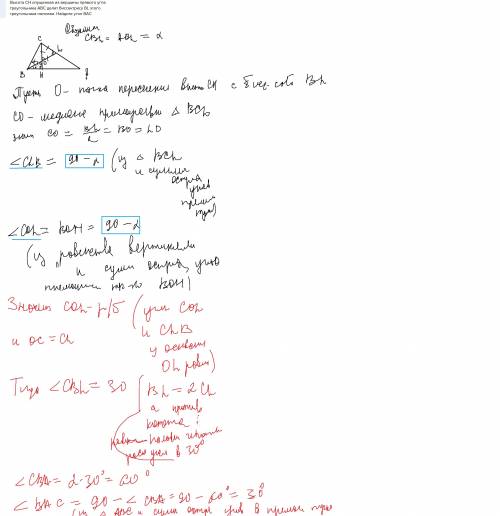 Высота CH опущенная из вершины прямого угла
треугольника ABC делит биссектрису BL этого
треугольника пополам. Найдите угол BAC
Обозначим
CBL = ABL = α
C
L
B H A
Пусть O - точка пересечения высоты CH с биссектрисой BL
CO - медиана прямоугольн △ BCL
знач CO = BL/2 = BO = LO
∠CLB = 90 - α (из △ BCL
и суммы
острых
углов
прямоуг
∠COL = BOH = 90 - α
(из равенства вертикальн
и сумм острых углов
BOH)
Значит COL - р/б (углы COL
и CLB
у основан
OL равны)
и OC = CL
Тогда ∠CBL = 30 (BL = 2CL
а против
катета
половин
угол в 30°
∠CBA = 2·30° = 60°
∠BAC = 90 - ∠CBA = 90 - 60° = 30°
△ ABC и сумм остр углов в прямоуг